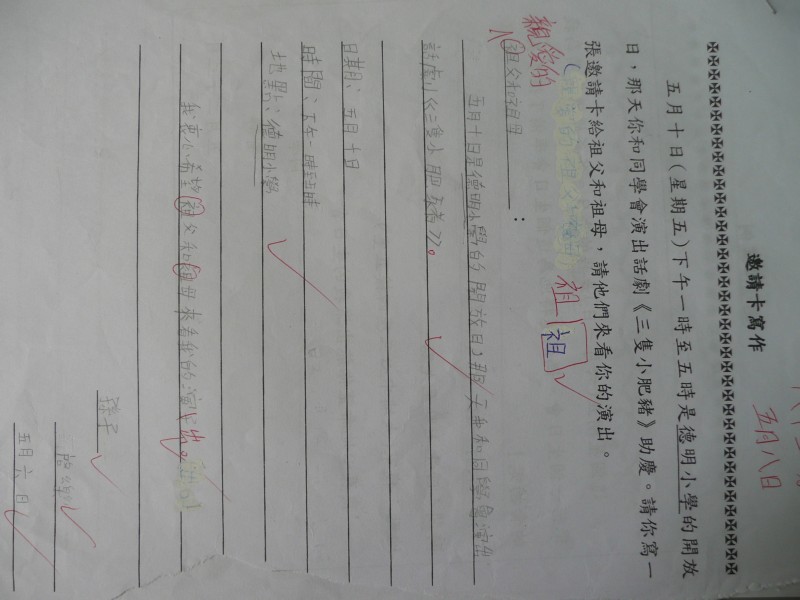 五月八日
邀請卡寫作
五月十日(星期五)下午一時至五時是德明小學的開放
日,那天你和同學會演出話劇《三隻小肥豬》助慶。請你寫一
張邀請卡給祖父和祖母,請他們來看你的演出。
祖
祖
親愛的
祖父和祖母:
五月十日是德明小學的開放日,那天我和同學會演出
話劇《三隻小肥豬》。
日期:五月十日
時間:下午一時至五時
地點:德明小學
我衷心希望祖父和祖母來看我的演出。
孫子
五月六日